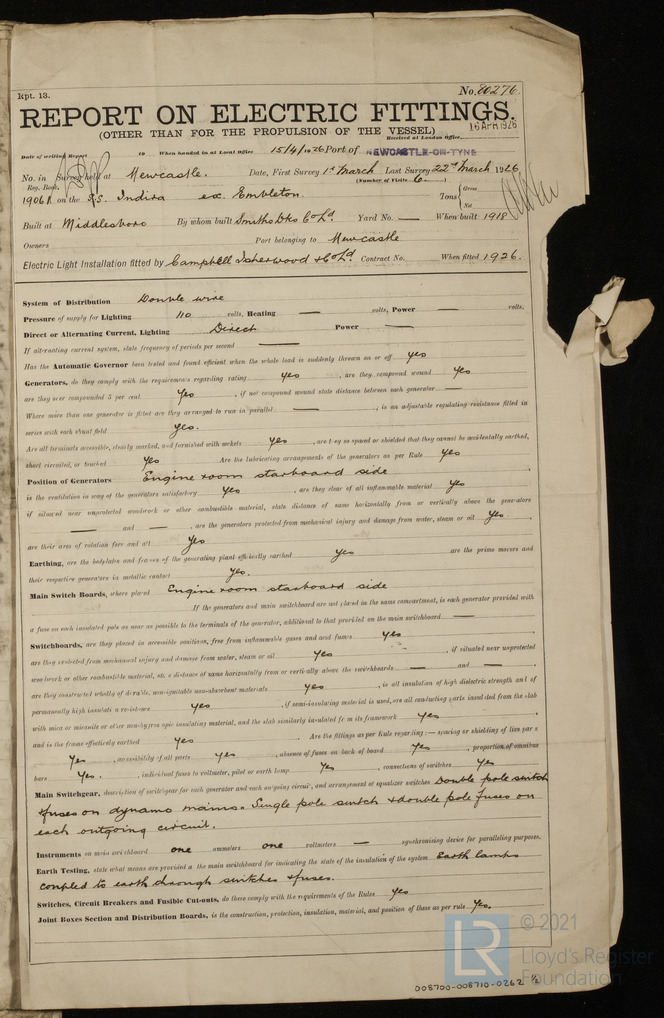 Rpt. 13.
No. 80276.
REPORT ON ELECTRIC FITTINGS.
(OTHER THAN FOR THE PROPULSION OF THE VESSEL)
Received at London Office 16 APR 1926
Date of writing Report 19 When handed in at Local Office 15/4/1926 Port of NEWCASTLE-ON-TYNE
No. in Survey held at Newcastle. Date, First Survey 1st March Last Survey 22nd March 1926
Reg. Book. (Number of Visits 6)
1906A on the S.S. Indira ex. Embleton. Tons { Gross Net
Built at Middlesboro By whom built Smiths Dks Co Ld. Yard No. — When built 1918
Owners Port belonging to Newcastle
Electric Light Installation fitted by Campbell Isherwood & Co Ld. Contract No. When fitted 1926.
System of Distribution Double wire
Pressure of supply for Lighting 110 volts, Heating — volts, Power — volts.
Direct or Alternating Current, Lighting Direct Power —
If alternating current system, state frequency of periods per second —
Has the Automatic Governor been tested and found efficient when the whole load is suddenly thrown on or off yes
Generators, do they comply with the requirements regarding rating yes, are they compound wound yes
are they over compounded 5 per cent. yes, if not compound wound state distance between each generator —
Where more than one generator is fitted are they arranged to run in parallel —, is an adjustable regulating resistance fitted in
series with each shunt field yes.
Are all terminals accessible, clearly marked, and furnished with sockets yes, are they so spaced or shielded that they cannot be accidentally earthed,
short circuited, or touched yes Are the lubricating arrangements of the generators as per Rule yes
Position of Generators Engine room starboard side
is the ventilation in way of the generators satisfactory yes, are they clear of all inflammable material yes
if situated near unprotected woodwork or other combustible material, state distance of same horizontally from or vertically above the generators
— and —, are the generators protected from mechanical injury and damage from water, steam or oil yes.
are their axes of rotation fore and aft yes
Earthing, are the bedplates and frames of the generating plant efficiently earthed yes are the prime movers and
their respective generators in metallic contact yes.
Main Switch Boards, where placed Engine room starboard side
If the generators and main switchboard are not placed in the same compartment, is each generator provided with
a fuse on each insulated pole as near as possible to the terminals of the generator, additional to that provided on the main switchboard —
Switchboards, are they placed in accessible positions, free from inflammable gases and acid fumes yes
are they protected from mechanical injury and damage from water, steam or oil yes, if situated near unprotected
woodwork or other combustible material, state distance of same horizontally from or vertically above the switchboards — and —
are they constructed wholly of durable, non-ignitable non-absorbent materials yes, is all insulation of high dielectric strength and of
permanently high insulation resistance yes, if semi-insulating material is used, are all conducting parts insulated from the slab
with mica or micanite or other non-hygroscopic insulating material, and the slab similarly insulated from its framework yes
and is the frame effectively earthed yes Are the fittings as per Rule regarding:— spacing or shielding of live parts
yes, accessibility of all parts yes, absence of fuses on back of board yes, proportion of omnibus
bars yes., individual fuses to voltmeter, pilot or earth lamp yes, connections of switches yes
Main Switchgear, description of switchgear for each generator and each outgoing circuit, and arrangement of equalizer switches Double pole switch
& fuses on dynamo mains. Single pole switch & double pole fuses on
each outgoing circuit.
Instruments on main switchboard one ammeters one voltmeters — synchronising device for paralleling purposes.
Earth Testing, state what means are provided on the main switchboard for indicating the state of the insulation of the system Earth lamps
coupled to earth through switches & fuses.
Switches, Circuit Breakers and Fusible Cut-outs, do these comply with the requirements of the Rules yes
Joint Boxes Section and Distribution Boards, is the construction, protection, insulation, material, and position of these as per rule yes.
LR
© 2021
Lloyd's Register
Foundation
008700-008710-0262 1/2